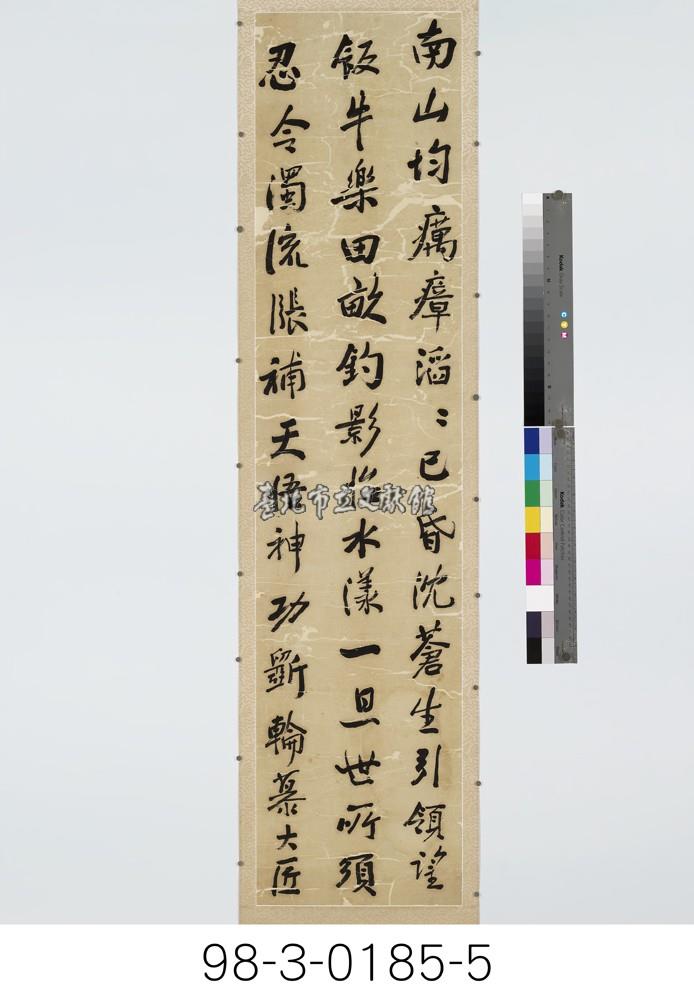 南山均癘瘴滔〻已昏沈蒼生引領望
飯牛樂田畝釣影水漾一旦世所須
忍令濁流漲補天悟神功斲輪慕大匠
臺北市立文獻館
Kodak
Kodak
98-3-0185-5